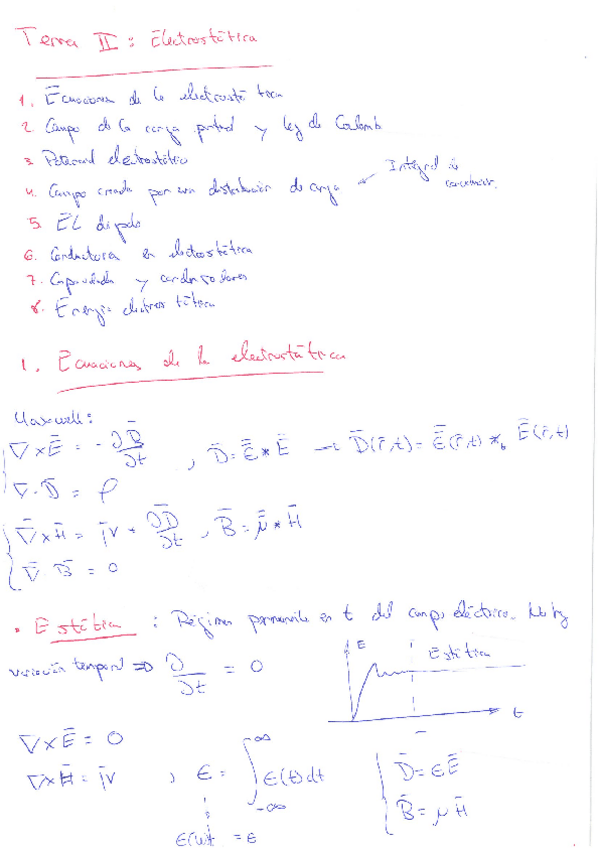 Tema II : Electrostática
1. Ecuaciones de la electrostática
2. Campo de la carga puntual y ley de Coulomb
3. Potencial electrostático
4. Campo creado por una distribución de carga ← Integral de
5. El dipolo
6. Conductores en electrostática
7. Capacidad y condensadores
8. Energía electrostática
1. Ecuaciones de la electrostática
Maxwell:
∇ x Ē = - ∂B̄/∂t , D̄ = ε̄ * Ē → D̄(r̄,t) = ε̄(r̄,t) * Ē(r̄,t)
∇ · D̄ = ρ
∇̄ x H̄ = j̄v + ∂D̄/∂t , B̄ = μ̄ * H̄
∇̄ · B̄ = 0
• Estática : Régimen permanente en t del campo eléctrico. No hay
variación temporal => ∂/∂t = 0
E
Estática
t
∇ x Ē = 0
∇ x H̄ = j̄v , ε = ∫_{-∞}^{∞} ε(t) dt
D̄ = εĒ
B̄ = μ H̄
= ε